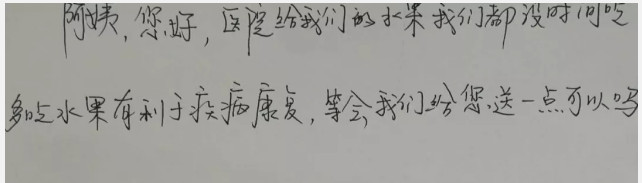 阿姨,您好,医院给我们的水果我们都没时间吃
多吃水果有利于疾病康复,等会,我们给您送一点可以吗